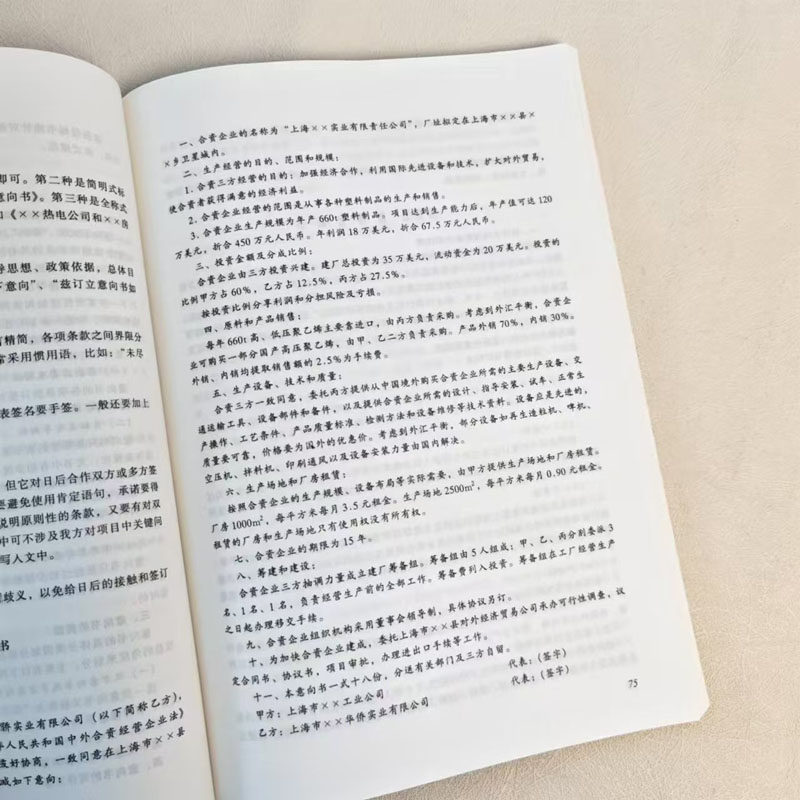 即可。第二种是简明式标
意向书》。第三种是全称式
如《××热电公司和××房
导思想、政策依据，总体目
下意向”、“兹订立意向书如
言精简，各项条款之间界限分
常采用惯用语，比如：“未尽
表签名要手签。一般还要加上
但它对日后合作双方或多方签
要避免使用肯定语句，承诺要得
说明原则性的条款，又要有对双
中可不涉及我方对项目中关键问
写人文中。
歧义，以免给日后的接触和签订
书
侨实业有限公司（以下简称乙方），
人民共和国中外合资经营企业法》
友好协商，一致同意在上海市××县
成如下意向：
一、合资企业的名称为“上海××实业有限责任公司”，厂址拟定在上海市××县×
×乡卫星城内。
二、生产经营的目的、范围和规模：
1.合资三方经营的目的：加强经济合作，利用国际先进设备和技术，扩大对外贸易，
使合资者获得满意的经济利益。
2.合资企业经营的范围是从事各种塑料制品的生产和销售。
3.合资企业生产规模为年产660t塑料制品。项目达到生产能力后，年产值可达120
万美元，折合450万元人民币。年利润18万美元，折合67.5万元人民币。
三、投资金额及分成比例：
合资企业由三方投资兴建。建厂总投资为35万美元，流动资金为20万美元。投资的
比例甲方占60%，乙方占12.5%，丙方占27.5%。
按投资比例分享利润和分担风险及亏损。
四、原料和产品销售：
每年660t高、低压聚乙烯主要靠进口，由丙方负责采购。考虑到外汇平衡，合资企
业可购买一部分国产高压聚乙烯，由甲、乙二方负责采购。产品外销70%，内销30%。
外销、内销均提取销售额的2.5%为手续费。
五、生产设备、技术和质量：
合资三方一致同意，委托丙方提供从中国境外购买合资企业所需的主要生产设备、交
通运输工具、设备部件和备件，以及提供合资企业所需的设计、指导安装、试车、正常生
产操作、工艺条件、产品质量标准、检测方法和设备维修等技术资料。设备应是先进的，
质量要可靠，价格要为国外的优惠价。考虑到外汇平衡，部分设备如再生造粒机、啤机、
空压机、拌料机、印刷通风以及设备安装力量由国内解决。
六、生产场地和厂房租赁：
按照合资企业的生产规模、设备布局等实际需要，由甲方提供生产场地和厂房租赁。
厂房1000m²，每平方米每月3.5元租金。生产场地2500m²，每平方米每月0.90元租金。
租赁的厂房和生产场地只有使用权没有所有权。
七、合资企业的期限为15年。
八、筹建和建设：
合资企业三方抽调力量成立建厂筹备组。筹备组由5人组成：甲、乙、丙分别委派3
名、1名、1名，负责经营生产前的全部工作。筹备费列入投资。筹备组在工厂经营生产
之日起办理移交手续。
九、合资企业组织机构采用董事会领导制，具体协议另订。
十、为加快合资企业建成，委托上海市××县对外经济贸易公司承办可行性调查，议
定合同书、协议书，项目审批，办理进出口手续等工作。
十一、本意向书一式十八份，分送有关部门及三方自留。
甲方：上海市××工业公司 代表：（签字）
乙方：上海市××华侨实业有限公司 代表：（签字）
75